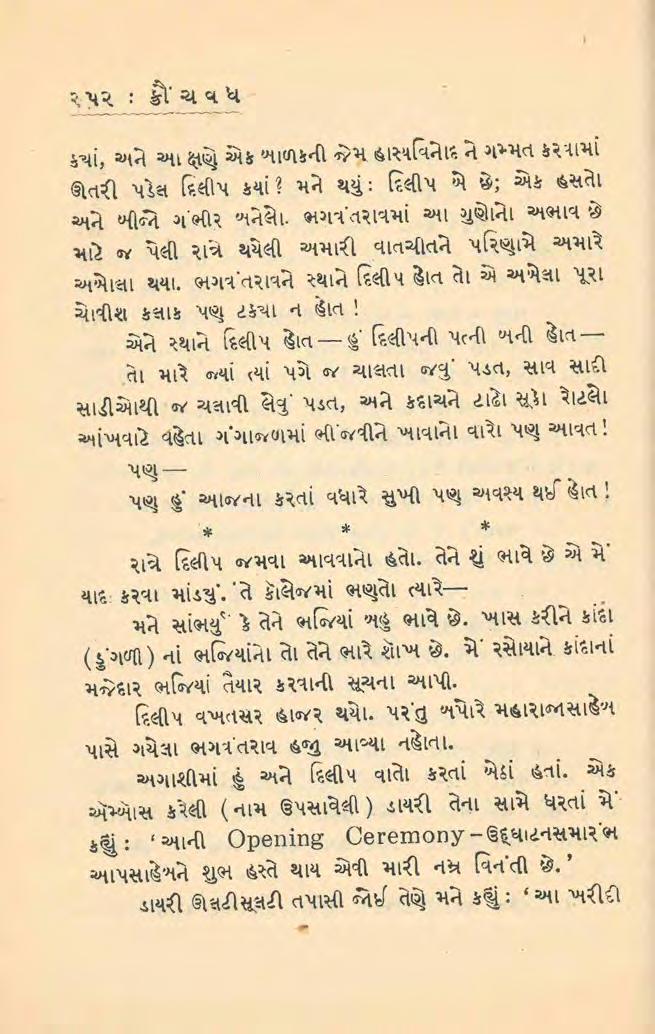 ૨૫૨ : ક્રૌંચવધ
કયાં, અને આ ક્ષણે એક બાળકની જેમ હાસ્યવિનોદ ને ગમ્મત કરવામાં
ઊતરી પડેલ દિલીપ કયાં ? મને થયું: દિલીપ બે છે; એક હસતો
અને બીજો ગંભીર બનેલો. ભગવંતરાવમાં આ ગુણોનો અભાવ છે
માટે જ પેલી રાત્રે થયેલી અમારી વાતચીતને પરિણામે અમારે
અબોલા થયા. ભગવંતરાવને સ્થાને દિલીપ હોત તો એ અબેલા પૂરા
ચોવીશ કલાક પણ ટકયા ન હોત !
એને સ્થાને દિલીપ હોત — હું દિલીપની પત્ની બની હોત —
તો મારે જ્યાં ત્યાં પગે જ ચાલતા જવું પડત, સાવ સાદી
સાડીઓથી જ ચલાવી લેવું પડત, અને કદાચને ટાઢો સૂકો રોટલો
આંખવાટે વહેતા ગંગાજળમાં ભીંજવીને ખાવાનો વારો પણ આવત!
પણ —
પણ હું આજના કરતાં વધારે સુખી પણ અવશ્ય થઈ હોત !
* * *
રાત્રે દિલીપ જમવા આવવાનો હતો. તેને શું ભાવે છે એ મેં
યાદ કરવા માંડયું. તે કૉલેજમાં ભણતો ત્યારે—
મને સાંભર્યું કે તેને ભજિયાં બહુ ભાવે છે. ખાસ કરીને કાંદા
(ડુંગળી) નાં ભજિયાંનો તો તેને ભારે શૉખ છે. મેં રસોયાને કાંદાનાં
મજેદાર ભજિયાં તૈયાર કરવાની સૂચના આપી.
દિલીપ વખતસર હાજર થયો. પરંતુ બપોરે મહારાજાસાહેબ
પાસે ગયેલા ભગવંતરાવ હજુ આવ્યા નહોતા.
અગાશીમાં હું અને દિલીપ વાતો કરતાં બેઠાં હતાં. એક
ઍમ્બૉસ કરેલી (નામ ઉપસાવેલી) ડાયરી તેના સામે ધરતાં મેં
કહ્યું : ‘આની Opening Ceremony-ઉદ્દઘાટનસમારંભ
આપસાહેબને શુભ હસ્તે થાય એવી મારી નમ્ર વિનંતી છે.’
ડાયરી ઊલટીસૂલટી તપાસી જોઈ તેણે મને કહ્યું : ‘આ ખરીદી